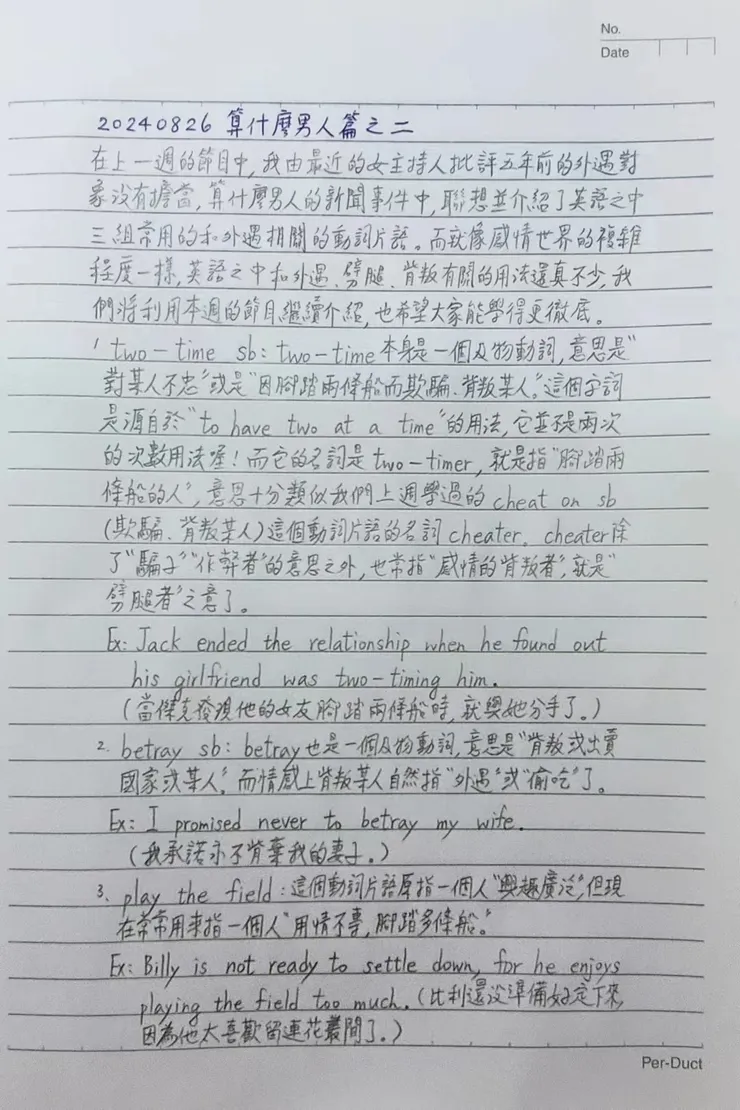 No.
Date
20240826 算什麼男人篇之二
在上一週的節目中,我由最近的女主持人批評五年前的外遇對
象沒有擔當,算什麼男人的新聞事件中,聯想並介紹了英語之中
三組常用的和外遇相關的動詞片語。而就像感情世界的複雜
程度一樣,英語之中和外遇、劈腿、背叛有關的用法還真不少,我
們將利用本週的節目繼續介紹,也希望大家能學得更徹底。
1 two-time sb: two-time本身是一個及物動詞,意思是"
對某人不忠"或是"因腳踏兩條船而欺騙、背叛某人"。這個字詞
是源自於"to have two at a time"的用法,它並不是兩次
的次數用法喔!而它的名詞是two-timer,就是指"腳踏兩
條船的人",意思十分類似我們上週學過的cheat on sb
(欺騙、背叛某人)這個動詞片語的名詞cheater。cheater除
了"騙子""作弊者"的意思之外,也常指"感情的背叛者",就是"
劈腿者"之意了。
Ex: Jack ended the relationship when he found out
his girlfriend was two-timing him.
(當傑克發現他的女友腳踏兩條船時,就與她分手了。)
2. betray sb: betray也是一個及物動詞,意思是"背叛或出賣
國家或某人"。而情感上背叛某人自然指"外遇"或"偷吃"了。
Ex: I promised never to betray my wife.
(我承諾永不背棄我的妻子。)
3. play the field:這個動詞片語原指一個人"興趣廣泛",但現
在常常用來指一個人"用情不專,腳踏多條船。"
Ex: Billy is not ready to settle down, for he enjoys
playing the field too much.(比利還沒準備好定下來,
因為他太喜歡留連花叢間了。)
Per-Duct